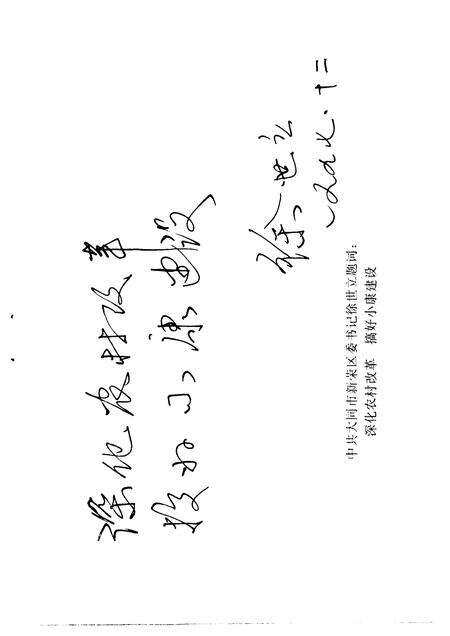 深化农村改革
搞好小康建设
徐世立
一九九七.十二
中共大同市新荣区委书记徐世立题词：
深化农村改革 搞好小康建设